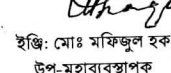 ইঞ্জি: মোঃ মফিজুল হক
উপ-মহাব্যবস্থাপক